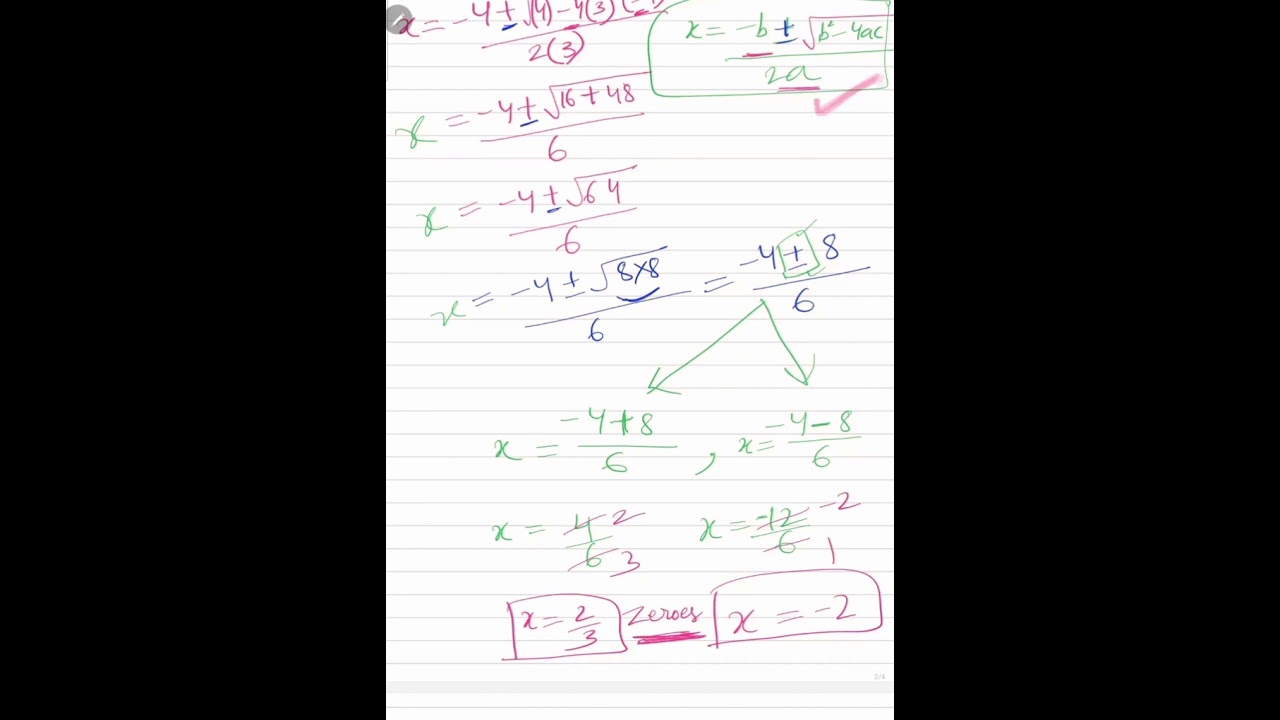 x = -4 ± √(4) - 4(3)
2(3)
x = -b ± √b² - 4ac
2a
x = -4 ± √16 + 48
6
x = -4 ± √64
6
x = -4 ± √8×8 = -4 ± 8
6 6
x = -4 + 8 , x = -4 - 8
6 6
x = 4 2 x = -12 -2
6 3 6 1
x = 2/3 Zeroes x = -2
2/4